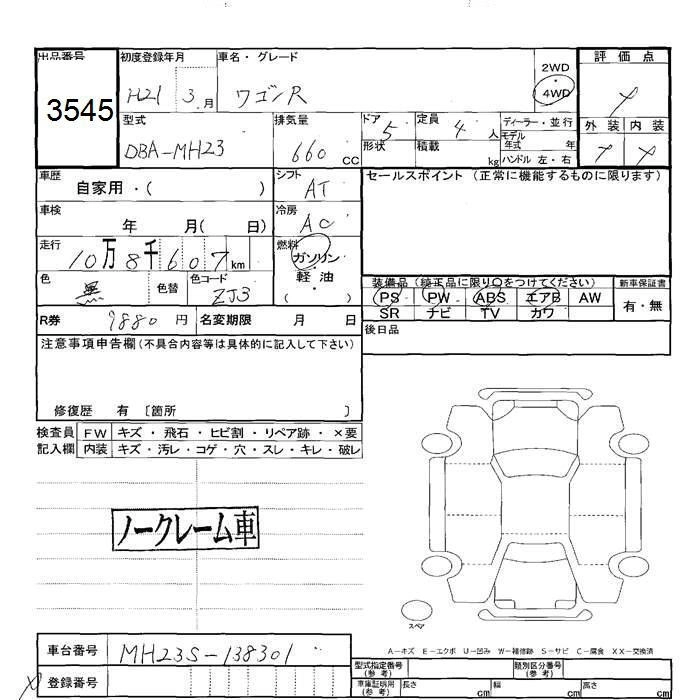 出品番号 3545
初度登録年月 H21 3月
車名・グレード ワゴンR
2WD・4WD
評価点
型式 DBA-MH23
排気量 660 cc
ドア 5
形状
定員 4 人
積載 kg
ディーラー・並行
モデル年式 年
ハンドル 左・右
外装 内装
車歴 自家用・( )
シフト AT
セールスポイント (正常に機能するものに限ります)
車検 年 月( 日)
冷房 AC
走行 10万8千607km
燃料 ガソリン・軽油 ( )
色 黒 色替 色コード ZJ3
装備品 (純正品に限り〇をつけてください)
新車保証書
PS PW ABS エアB AW
有・無
SR ナビ TV カワ
R券 9880 円 名変期限 月 日
後日品
注意事項申告欄 (不具合内容等は具体的に記入して下さい)
修復歴 有 〔箇所 〕
検査員記入欄
FW キズ・飛石・ヒビ割・リペア跡・×要
内装 キズ・汚レ・コゲ・穴・スレ・キレ・破レ
ノークレーム車
スペア
A－キズ E－エクボ U－凹み W－補修跡 S－サビ C－腐食 XX－交換済
車台番号 MH23S-138301
登録番号
型式指定番号 (参考)
類別区分番号 (参考)
車庫証明用 (参考) 長さ cm 幅 cm 高さ cm